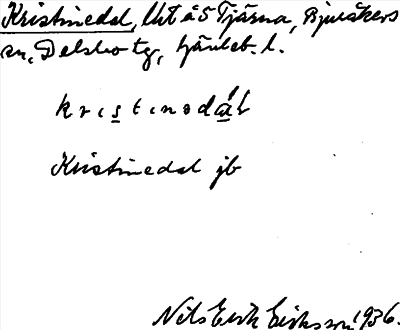 Kristinedal, lht å 5 Tjärna, Bjuråkers
sn, Delsbo tg, Gävleb. l.
kristinsdál
Kristinedal jb
Nils Erik Eriksson 1936.